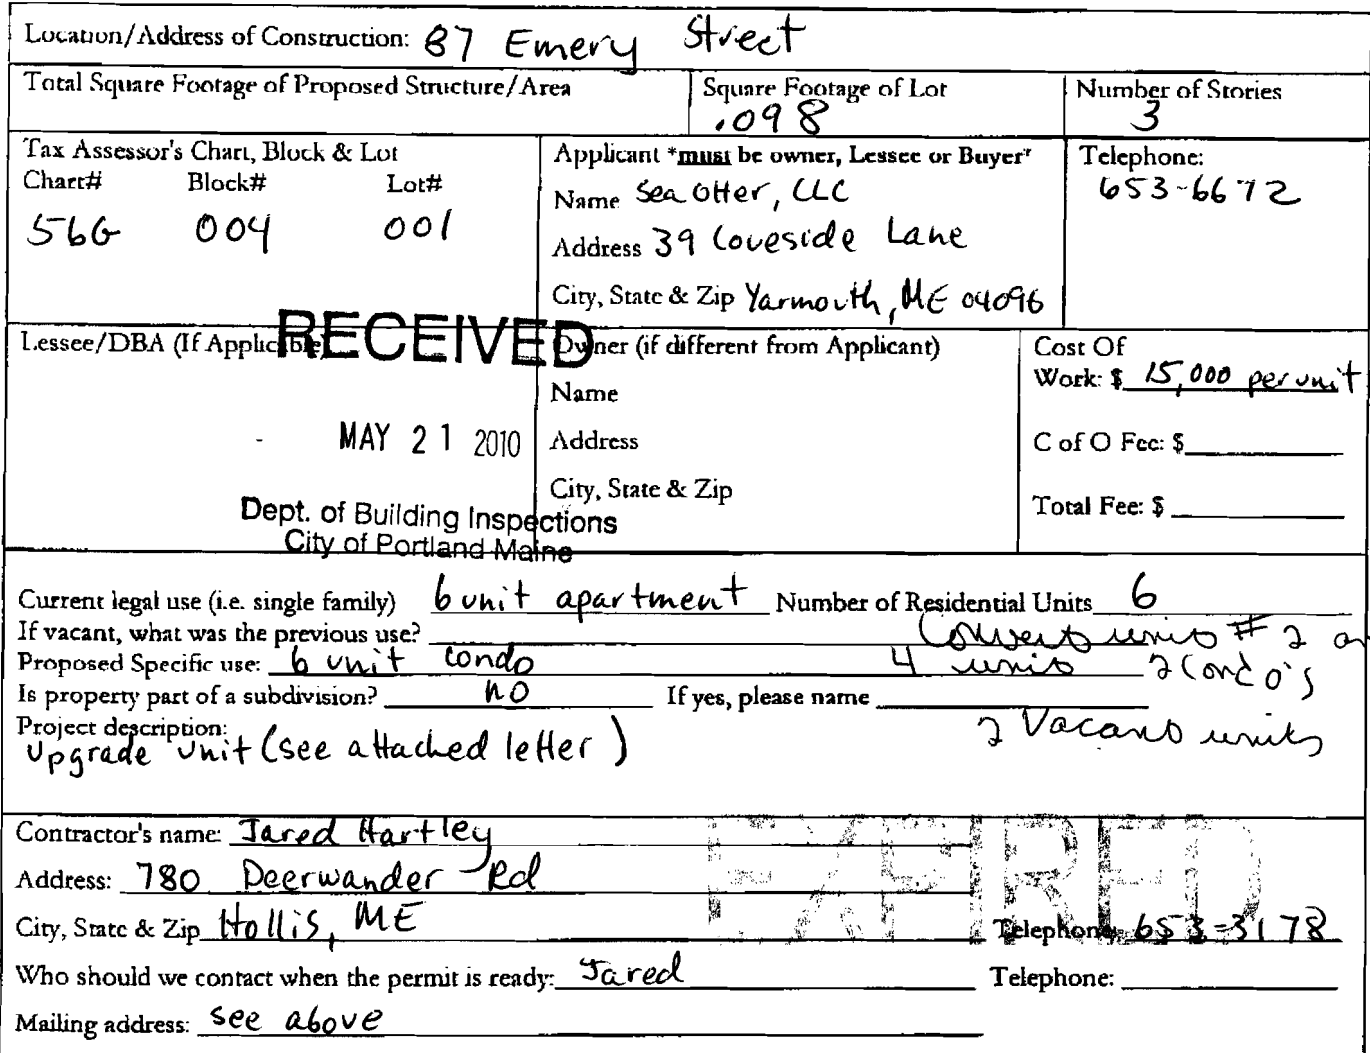 Location/Address of Construction: 87 Emery Street
Total Square Footage of Proposed Structure/Area
Square Footage of Lot
.098
Number of Stories
3
Tax Assessor's Chart, Block & Lot
Chart# Block# Lot#
56G 004 001
Applicant *must be owner, Lessee or Buyer*
Name Sea Otter, LLC
Address 39 Coveside Lane
City, State & Zip Yarmouth, ME 04096
Telephone:
653-6672
Lessee/DBA (If Applicable)
RECEIVED
MAY 21 2010
Dept. of Building Inspections
City of Portland Maine
Owner (if different from Applicant)
Name
Address
City, State & Zip
Cost Of
Work: $ 15,000 per unit
C of O Fee: $
Total Fee: $
Current legal use (i.e. single family) 6 unit apartment Number of Residential Units 6
If vacant, what was the previous use?
Convert units # 2 a
Proposed Specific use: 6 unit condo
4 units 2 Condo's
Is property part of a subdivision? no If yes, please name
2 Vacant units
Project description:
Upgrade unit (see attached letter)
Contractor's name: Jared Hartley
EXPIRED
Address: 780 Deerwander Rd
City, State & Zip Hollis, ME Telephone: 653-3178
Who should we contact when the permit is ready: Jared Telephone:
Mailing address: see above